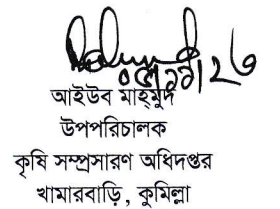 আইউব মাহমুদ
উপপরিচালক
কৃষি সম্প্রসারণ অধিদপ্তর
খামারবাড়ি, কুমিল্লা